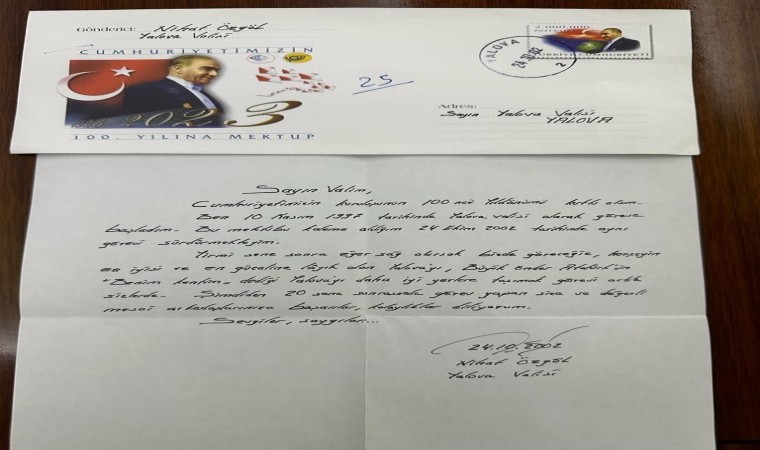 Gönderici: Nihat Özgöl
Yalova Valisi
CUMHURİYETİMİZİN
2023
100. YILINA MEKTUP
25
TÜRKİYE CUMHURİYETİ
YALOVA
24.10.02
2
Adres:
Sayın Yalova Valisi
YALOVA
Sayın Valim,
Cumhuriyetimizin kuruluşunun 100 ncü Yıldönümü kutlu olsun.
Ben 10 Kasım 1997 tarihinde Yalova valisi olarak göreve
başladım. Bu mektubu kaleme aldığım 24 Ekim 2002 tarihinde aynı
görevi sürdürmekteyim.
Yirmi sene sonra eğer sağ olursak bizde göreceğiz, herşeyin
en iyisi ve en güzeline lâyık olan Yalova'yı, Büyük Önder Atatürk'ün
"Benim kentim" dediği Yalova'yı daha iyi yerlere taşımak görevi artık
sizlerde. Şimdiden 20 sene sonrasında görev yapan size ve değerli
mesai arkadaşlarınıza başarılar, kolaylıklar diliyorum.
Sevgiler, saygılar...
24.10.2002
Nihat Özgöl
Yalova Valisi